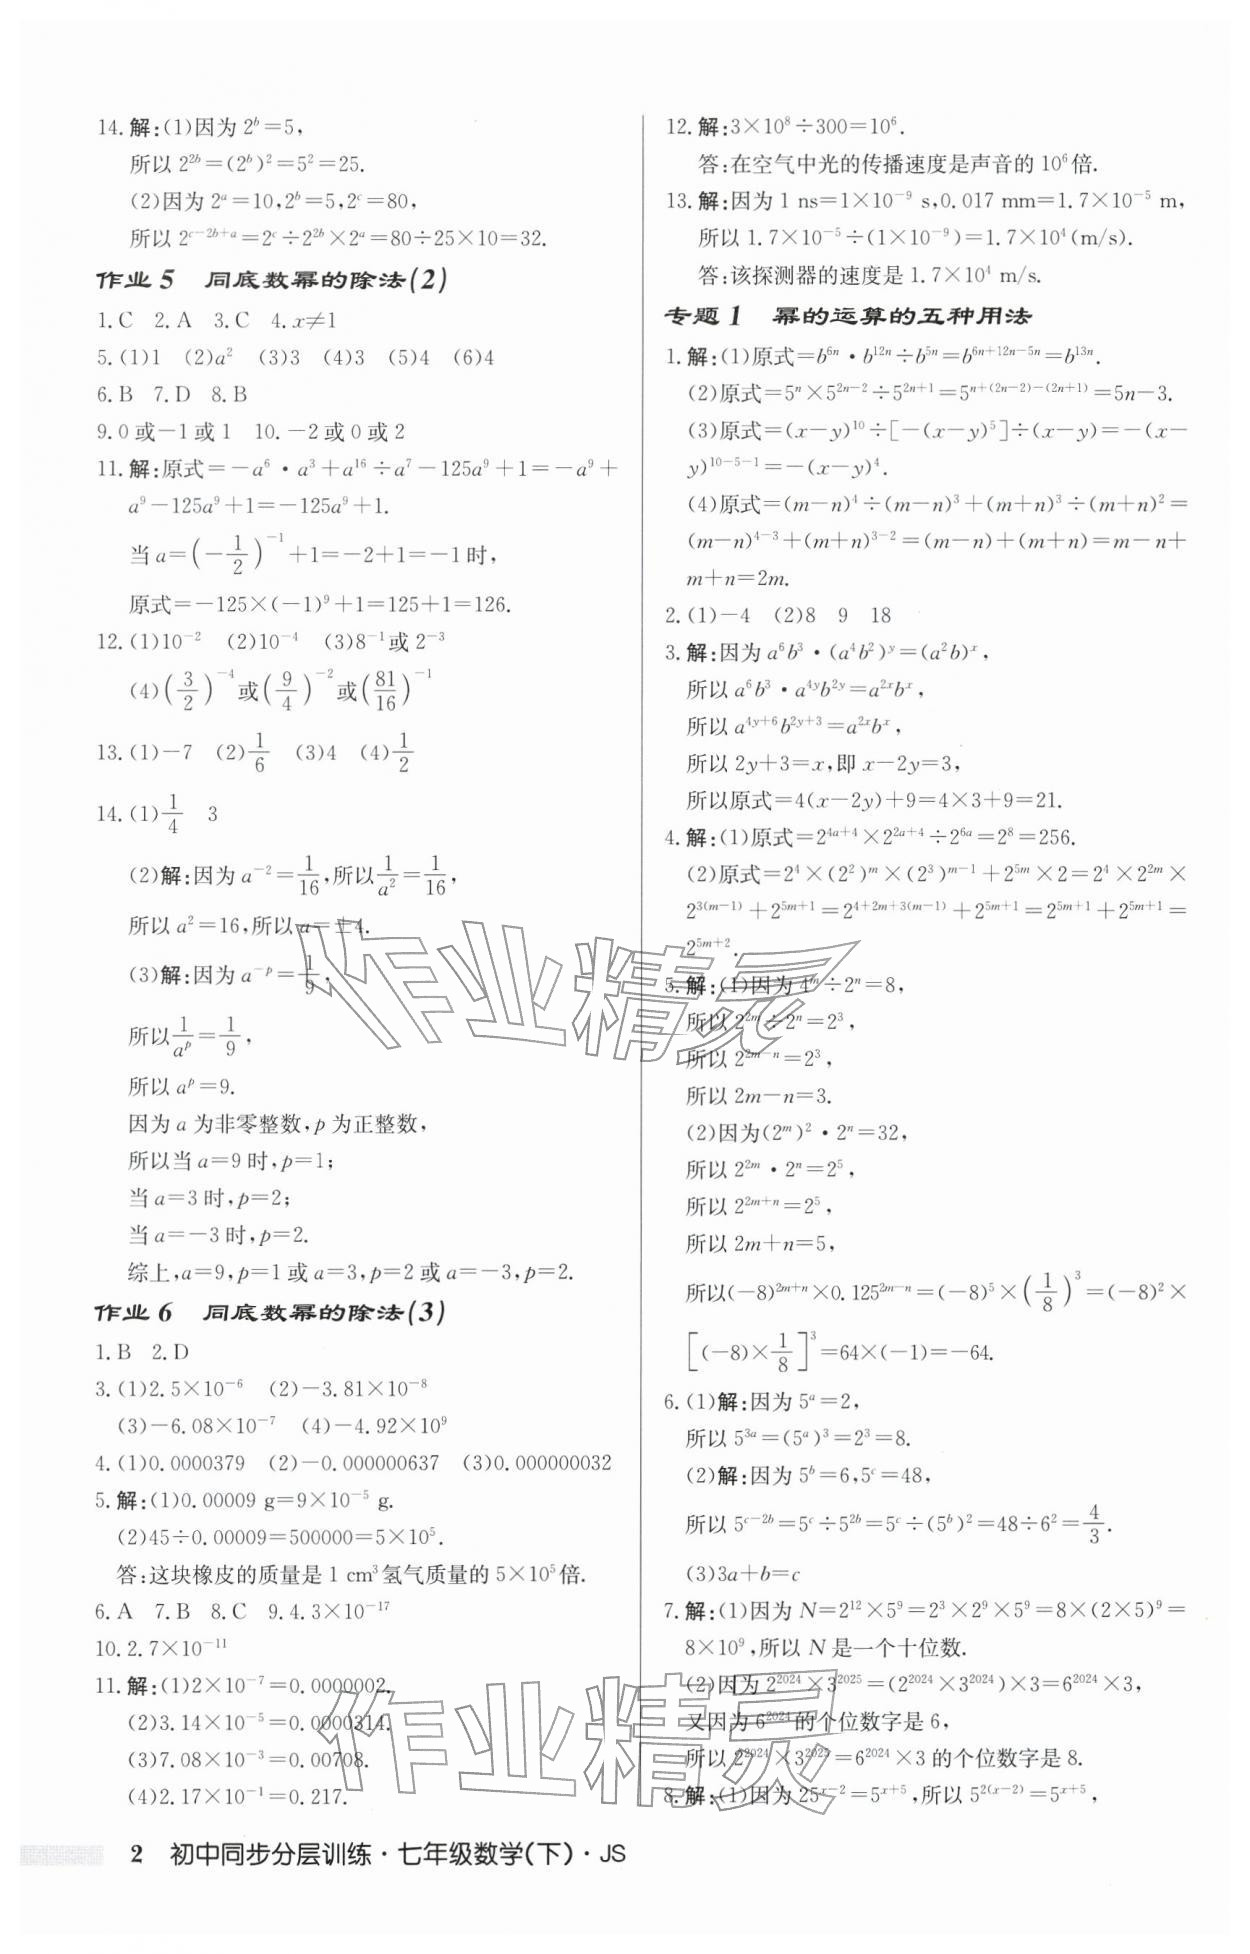 14.解:(1)因为 2^b=5,
所以 2^{2b}=(2^b)^2=5^2=25.
(2)因为 2^a=10,2^b=5,2^c=80,
所以 2^{c-2b+a}=2^c÷2^{2b}×2^a=80÷25×10=32.
作业 5 同底数幂的除法(2)
1.C 2.A 3.C 4.x≠1
5.(1)1 (2)a^2 (3)3 (4)3 (5)4 (6)4
6.B 7.D 8.B
9.0 或-1 或 1 10.-2 或 0 或 2
11.解:原式=-a^6·a^3+a^{16}÷a^7-125a^9+1=-a^9+
a^9-125a^9+1=-125a^9+1.
当 a=(-\frac{1}{2})^{-1}+1=-2+1=-1 时,
原式=-125×(-1)^9+1=125+1=126.
12.(1)10^{-2} (2)10^{-4} (3)8^{-1}或 2^{-3}
(4)(\frac{3}{2})^{-4}或(\frac{9}{4})^{-2}或(\frac{81}{16})^{-1}
13.(1)-7 (2)\frac{1}{6} (3)4 (4)\frac{1}{2}
14.(1)\frac{1}{4} 3
(2)解:因为 a^{-2}=\frac{1}{16},所以\frac{1}{a^2}=\frac{1}{16},
所以 a^2=16,所以 a=±4.
(3)解:因为 a^{-p}=\frac{1}{9},
所以\frac{1}{a^p}=\frac{1}{9},
所以 a^p=9.
因为 a 为非零整数,p 为正整数,
所以当 a=9 时,p=1;
当 a=3 时,p=2;
当 a=-3 时,p=2.
综上,a=9,p=1 或 a=3,p=2 或 a=-3,p=2.
作业 6 同底数幂的除法(3)
1.B 2.D
3.(1)2.5×10^{-6} (2)-3.81×10^{-8}
(3)-6.08×10^{-7} (4)-4.92×10^9
4.(1)0.0000379 (2)-0.000000637 (3)0.000000032
5.解:(1)0.00009 g=9×10^{-5} g.
(2)45÷0.00009=500000=5×10^5.
答:这块橡皮的质量是 1 cm^3 氢气质量的 5×10^5倍.
6.A 7.B 8.C 9.4.3×10^{-17}
10.2.7×10^{-11}
11.解:(1)2×10^{-7}=0.0000002.
(2)3.14×10^{-5}=0.0000314.
(3)7.08×10^{-3}=0.00708.
(4)2.17×10^{-1}=0.217.
12.解:3×10^8÷300=10^6.
答:在空气中光的传播速度是声音的 10^6倍.
13.解:因为 1 ns=1×10^{-9} s,0.017 mm=1.7×10^{-5} m,
所以 1.7×10^{-5}÷(1×10^{-9})=1.7×10^4(m/s).
答:该探测器的速度是 1.7×10^4 m/s.
专题 1 幂的运算的五种用法
1.解:(1)原式=b^{6n}·b^{12n}÷b^{5n}=b^{6n+12n-5n}=b^{13n}.
(2)原式=5^n×5^{2n-2}÷5^{2n+1}=5^{n+(2n-2)-(2n+1)}=5n-3.
(3)原式=(x-y)^{10}÷[-(x-y)^5]÷(x-y)=-(x-
y)^{10-5-1}=-(x-y)^4.
(4)原式=(m-n)^4÷(m-n)^3+(m+n)^3÷(m+n)^2=
(m-n)^{4-3}+(m+n)^{3-2}=(m-n)+(m+n)=m-n+
m+n=2m.
2.(1)-4 (2)8 9 18
3.解:因为 a^6b^3·(a^4b^2)^y=(a^2b)^x,
所以 a^6b^3·a^{4y}b^{2y}=a^{2x}b^x,
所以 a^{4y+6}b^{2y+3}=a^{2x}b^x,
所以 2y+3=x,即 x-2y=3,
所以原式=4(x-2y)+9=4×3+9=21.
4.解:(1)原式=2^{4a+4}×2^{2a+4}÷2^{6a}=2^8=256.
(2)原式=2^4×(2^2)^m×(2^3)^{m-1}+2^{5m}×2=2^4×2^{2m}×
2^{3(m-1)}+2^{5m+1}=2^{4+2m+3(m-1)}+2^{5m+1}=2^{5m+1}+2^{5m+1}=
2^{5m+2}.
5.解:(1)因为 4^m÷2^n=8,
所以 2^{2m}÷2^n=2^3,
所以 2^{2m-n}=2^3,
所以 2m-n=3.
(2)因为(2^m)^2·2^n=32,
所以 2^{2m}·2^n=2^5,
所以 2^{2m+n}=2^5,
所以 2m+n=5,
所以(-8)^{2m+n}×0.125^{2m-n}=(-8)^5×(\frac{1}{8})^3=(-8)^2×
[(-8)×\frac{1}{8}]^3=64×(-1)=-64.
6.(1)解:因为 5^a=2,
所以 5^{3a}=(5^a)^3=2^3=8.
(2)解:因为 5^b=6,5^c=48,
所以 5^{c-2b}=5^c÷5^{2b}=5^c÷(5^b)^2=48÷6^2=\frac{4}{3}.
(3)3a+b=c
7.解:(1)因为 N=2^{12}×5^9=2^3×2^9×5^9=8×(2×5)^9=
8×10^9,所以 N 是一个十位数.
(2)因为 2^{2024}×3^{2025}=(2^{2024}×3^{2024})×3=6^{2024}×3,
又因为 6^{2024}的个位数字是 6,
所以 2^{2024}×3^{2025}=6^{2024}×3 的个位数字是 8.
8.解:(1)因为 25^{x-2}=5^{x+5},所以 5^{2(x-2)}=5^{x+5},
2 初中同步分层训练·七年级数学(下)·JS
作业精灵
作业精灵